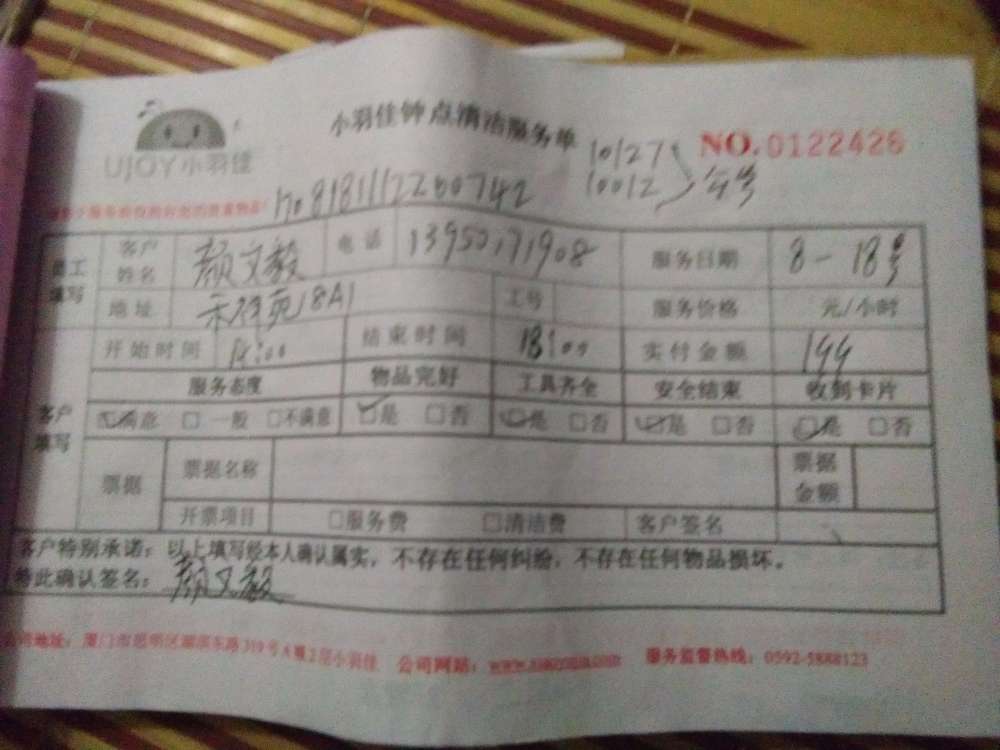 UJOY小羽佳
小羽佳钟点清洁服务单
10127
10012
NO.0122426
员工填写
客户姓名 颜文毅 电话 服务日期 8-18号
地址 禾祥苑18A1 工号 服务价格 元/小时
开始时间 14:00 结束时间 18:00 实付金额 144
客户填写
服务态度 物品完好 工具齐全 安全结束 收到卡片
满意 一般 不满意 是 否 是 否 是 否 是 否
票据 票据名称 票据金额
开票项目 服务费 清洁费 客户签名
客户特别承诺：以上填写经本人确认属实，不存在任何纠纷，不存在任何物品损坏。
特此确认签名：颜文毅
公司地址：厦门市思明区湖滨东路319号A幢2层小羽佳 公司网站： 服务监督热线：0592-5888123